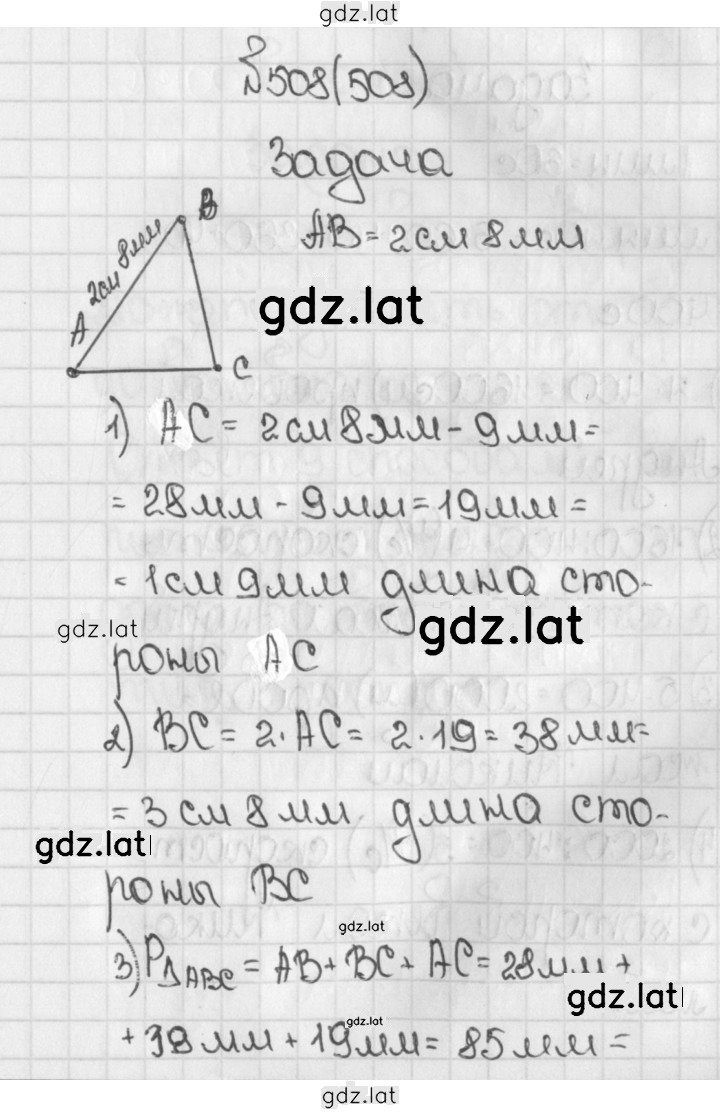 gdz.lat
№508(508)
Задача
B
AB = 2см 8мм
2см 8мм
gdz.lat
A
C
1) AC = 2см 8мм - 9мм =
= 28мм - 9мм = 19мм =
= 1см 9мм длина сто-
gdz.lat
gdz.lat
роны AC
2) BC = 2·AC = 2·19 = 38мм =
= 3см 8мм длина сто-
gdz.lat
роны BC
gdz.lat
3) P△ABC = AB + BC + AC = 28мм +
gdz.lat
gdz.lat
+ 38мм + 19мм = 85мм =
gdz.lat